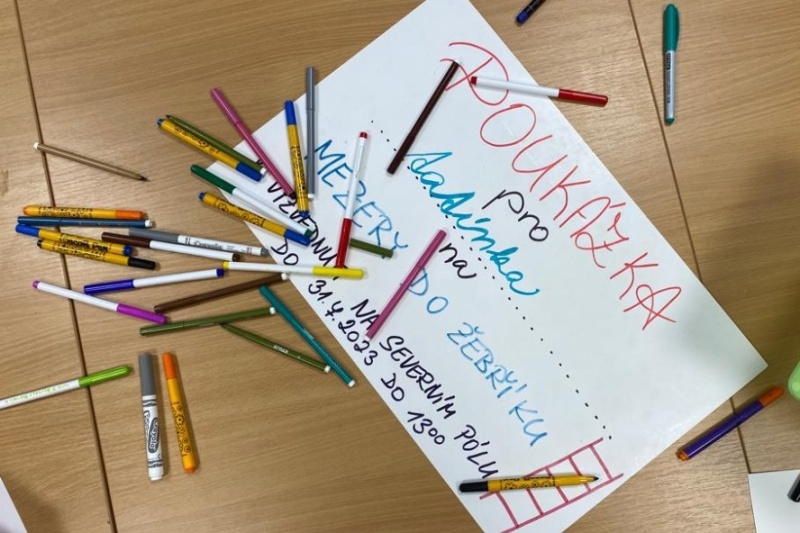 POUKÁZKA
pro
na
MEZERY DO ŽEBŘÍKU
NA SEVERNÍM PÓLU
DO 31.7.2023 DO 1300